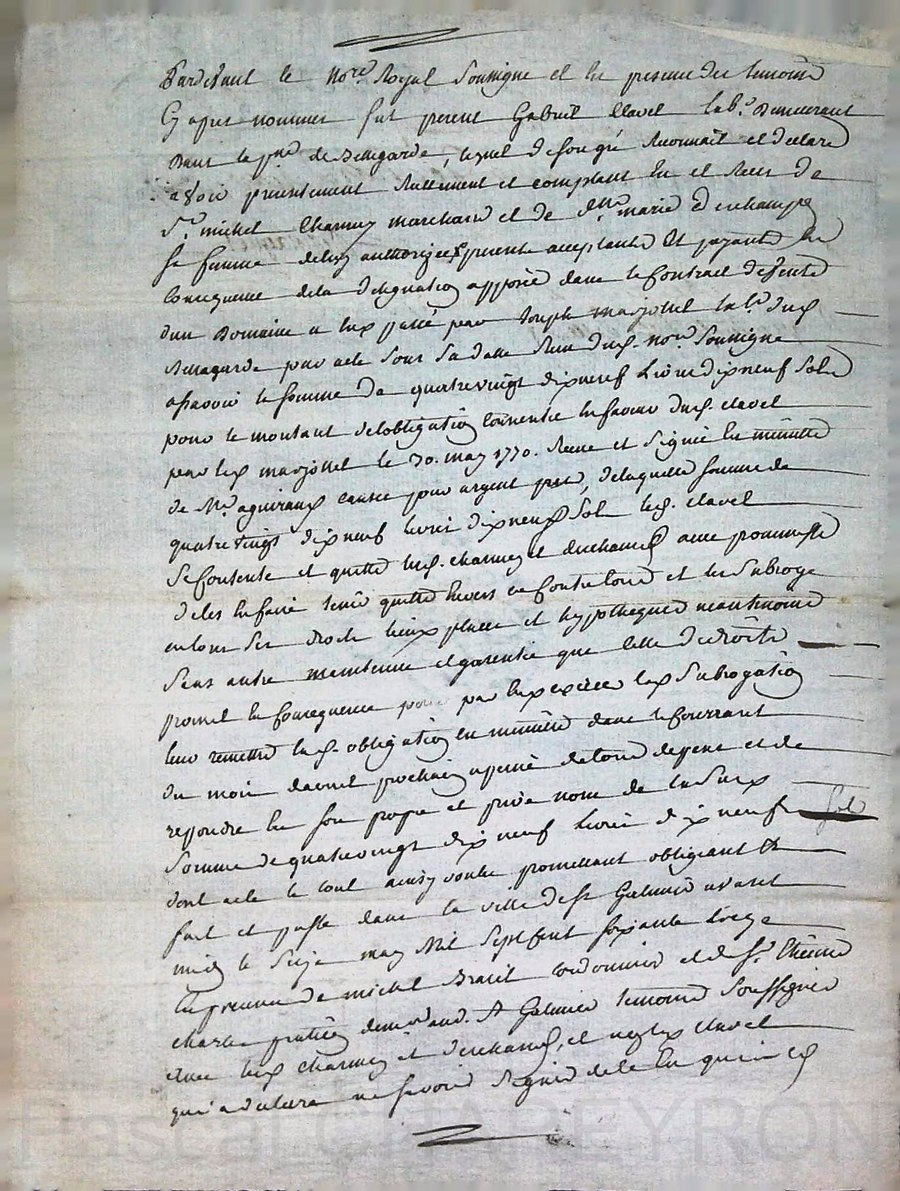 Pardevant le no.re Royal Soussigné et en presence des temoins
Cy apres nommés fut present Gabriel Clavel lab.r demeurant
dans la p.sse de Bellegarde, lequel de son gré reconnait et declare
avoir presentement reellement et comptant eu et receu de
S.r michel Charmey marchand et de d.lle marie Deschamps
sa femme deluy authorizée presents acceptants et payants en
consequence dela delegation apposée dans le contrat de vente
dun Domaine a eux passé par Joseph marjollet lab.r dud.
Bellegarde par acte sous sa datte Receu dud. no.re Soussigné
assavoir la somme de quatrevingt dixneuf livres dixneuf sols
pour le montant de lobligation consentie en faveur dud. clavel
par led. marjollet le 30. may 1770. Receue et signée en minutte
de M.e aguiraud causée pour argent pret, delaquelle somme de
quatrevingt dixneuf livres dixneuf sols led. clavel
se contente et quitte lesd. charmey et deschamps avec promesse
de les en faire tenir quitte envers et contre tous et les subroge
en tous ses droits lieux place et hypotheques neantmoins
sans autre maintenue et garentie que celle de droit
promet en consequence pour par eux exercer lad. Subrogation
leur remettre lad. obligation en minutte dans le courrant
du mois daoust prochain a peine de tous depens et de
repondre en son propre et privé nom de lad.
somme de quatrevingt dix neuf livres dix neuf sols
dont acte le tout ainsy voulu promettant obligeant &
fait et passé dans la ville de S.t Galmier avant
midy le Seize may Mil Sept Cent soixante treize
en presence de michel Brasil cordonnier et de S.r Etienne
charles praticien demeurand. A Galmier temoins soussignés
avec lesd. charmey et deschamps, et non led. clavel
qui a declaré ne savoir signer de ce enquis
Pascal CHAPEYRON